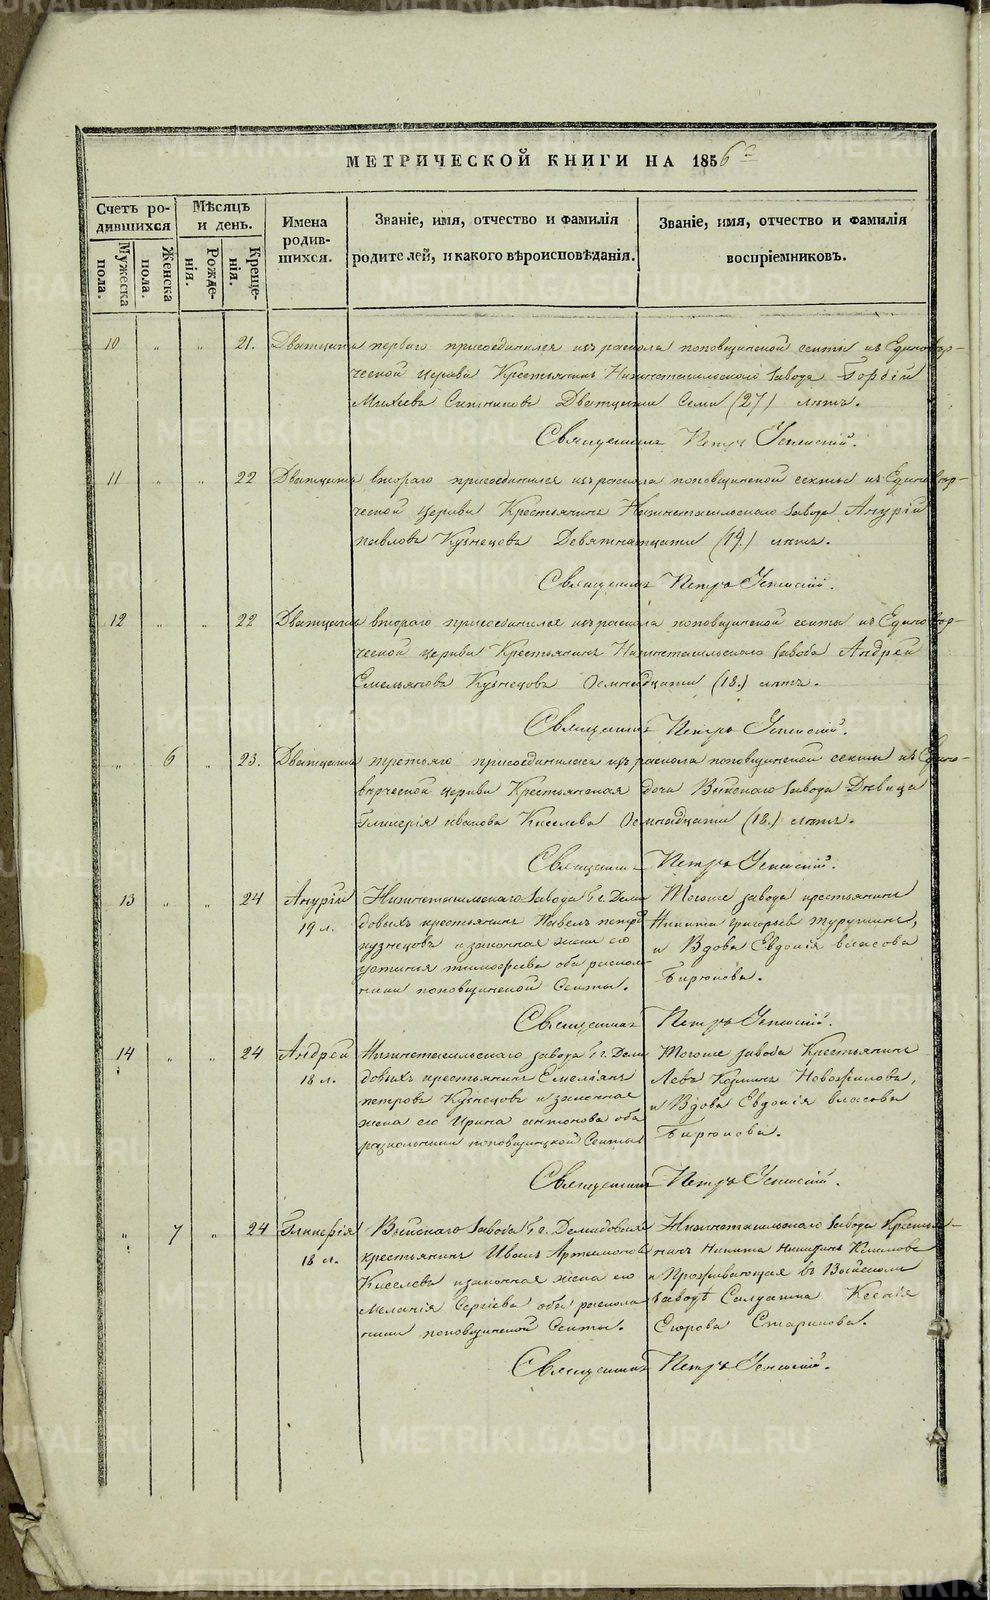 МЕТРИЧЕСКОЙ КНИГИ НА 1856 г
Счетъ ро-
дившихся
Мужеска пола.
Женска пола.
Мѣсяцъ
и день.
Рожде-
нія.
Креще-
нія.
Имена
родив-
шихся.
Званіе, имя, отчество и фамилія
родителей, и какого вѣроисповѣданія.
Званіе, имя, отчество и фамилія
воспріемниковъ.
10 " " 21. Дватцать перваго присоединился изъ раскола поповщинской секты къ Единовѣр-
ческой церкви Крестьянинъ Нижнетагильскаго завода Гордій
Михеевъ Дватцати Семи (27) лѣтъ.
Священникъ Петръ Успенскій.
11 " " 22 Дватцать втораго присоединился изъ раскола поповщинской секты къ Единовѣр-
ческой церкви Крестьянинъ Нижнетагильскаго завода Анурій
павловъ Кузнецовъ Девятнатцати (19.) лѣтъ.
Священникъ Петръ Успенскій.
12 " " 22 Дватцать втораго присоединился изъ раскола поповщинской секты къ Единовѣр-
ческой церкви Крестьянинъ Нижнетагильскаго завода Андрей
Емельяновъ Кузнецовъ Осмнадцати (18.) лѣтъ.
Священникъ Петръ Успенскій.
" 6 " 23. Дватцать третьяго присоединилась изъ раскола поповщинской секты къ Едино-
вѣрческой церкви Крестьянская дочь Выйскаго завода Дѣвица
Гликерія иванова Киселева Осмнадцати (18.) лѣтъ.
Священникъ Петръ Успенскій.
13 " " 24 Анурій
19 л.
Нижнетагильскаго завода Гг. Деми
довыхъ крестьянинъ Павелъ петровъ
кузнецовъ и законная жена его
устинья тимофеева оба расколь-
ники поповщинской Секты.
Тогоже завода крестьянинъ
Никита григорьевъ
и Вдова Евдокія власова
Бирюкова.
Священникъ Петръ Успенскій.
14 " " 24 Андрей
18 л.
Нижнетагильскаго завода Гг. Деми
довыхъ крестьянинъ Емеліянъ
петровъ Кузнецовъ и законная
жена его Ирина антонова оба
раскольники поповщинской Секты
Тогоже завода Крестьянинъ
Левъ Козминъ Новожиловъ,
и Вдова Евдокія власова
Бирюкова.
Священникъ Петръ Успенскій.
" 7 " 24 Гликерія
18 л.
Выйскаго завода Гг. Демидовыхъ
крестьянинъ Иванъ Артемоновъ
Киселевъ и законная жена его
Меланія Сергіева оба расколь
ники поповщинской Секты.
Нижнетагильскаго завода Крестья-
нинъ Никита Никитинъ Климовъ
и Проживающая въ Выйскомъ
заводѣ Солдатка Ксенія
Егорова Старикова.
Священникъ Петръ Успенскій.
METRIKI.GASO-URAL.RU